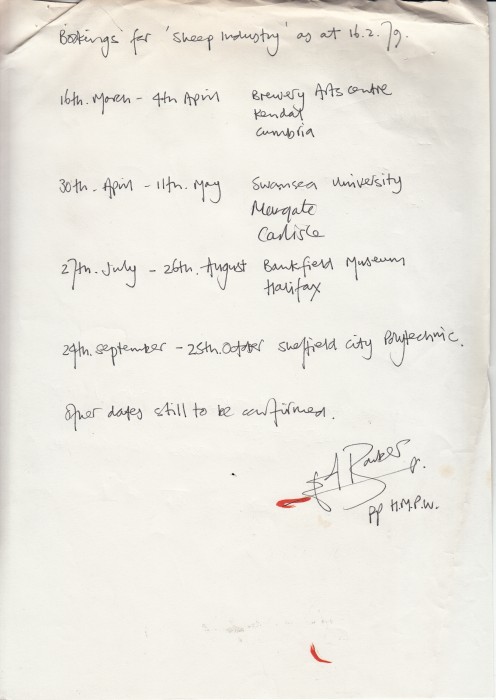 Bookings for 'Sheep Industry' as at 16.2.79.
16th. March - 4th April Brewery Arts centre
Kendal
Cumbria
30th. April - 11th. May Swansea University
Margate
Carlisle
27th. July - 26th. August Bankfield Museum
Halifax
24th. September - 25th. October Sheffield City Polytechnic.
Other dates still to be confirmed.
A Barker
pp H.M.P.W.